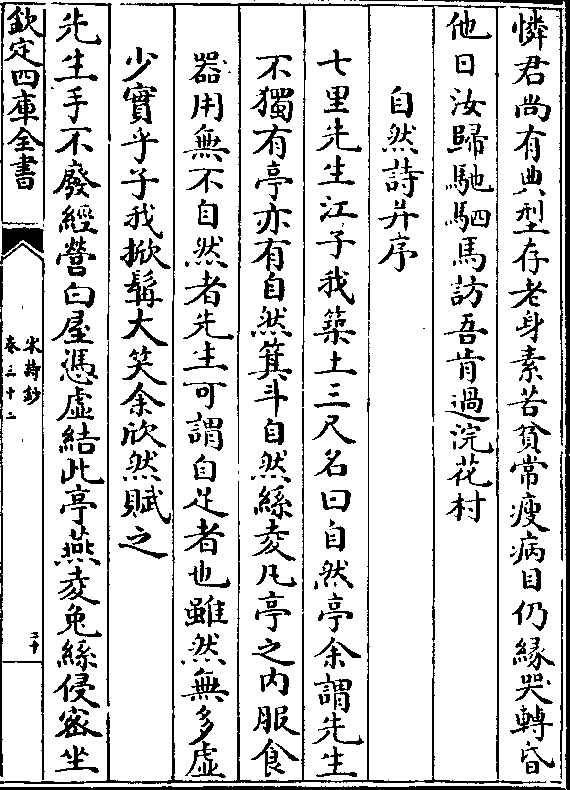 憐君尚有典型存老身素苦貧常瘦病目仍緣哭轉昏
他日汝歸馳駟馬訪吾肯過浣花村
自然詩并序
七里先生江子我築土三尺名曰自然亭余謂先生
不獨有亭亦有自然箕斗自然絲麥凡亭之内服食
器用無不自然者先生可謂自足者也雖然無多虛
少實乎子我掀髯大笑余欣然賦之
先生手不廢經營白屋憑虛結此亭燕麥兎絲侵密坐
欽定四庫全書
宋詩鈔
卷三十二
二十